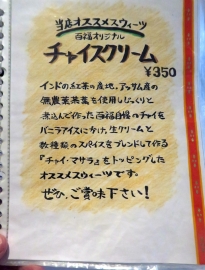 当店オススメスウィーツ
百福オリジナル
チャイスクリーム
¥350
インドの紅茶の産地、アッサム産の
無農薬茶葉を使用しじっくりと
煮込んで作った百福自慢のチャイを
バニラアイスにかけ、生クリームと
数種類のスパイスをブレンドして作る
『チャイ・マサラ』をトッピングした
オススメスウィーツです。
ぜひ、ご賞味下さい!